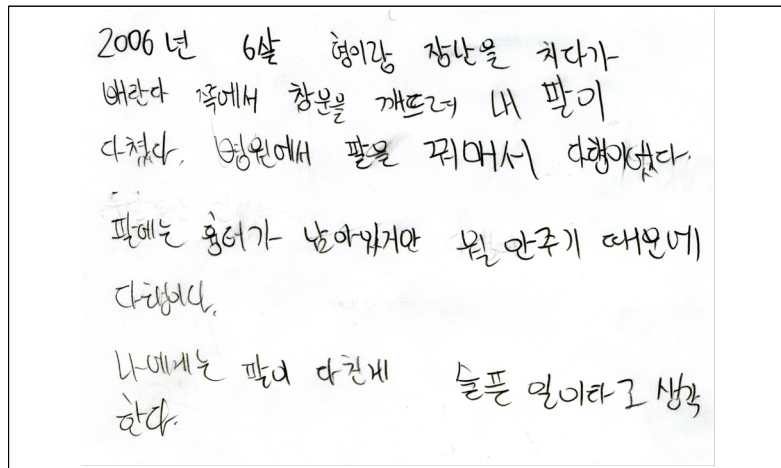 2006년 6살 형이랑 장난을 치다가
배란다 쪽에서 창문을 깨뜨려 내 팔이
다쳤다. 병원에서 팔을 꿔매서 다행이였다.
팔에는 흉터가 남아있지만 뭘 안주기 때문에
다행이다.
나에게는 팔이 다친게 슬픈 일이라고 생각
한다.